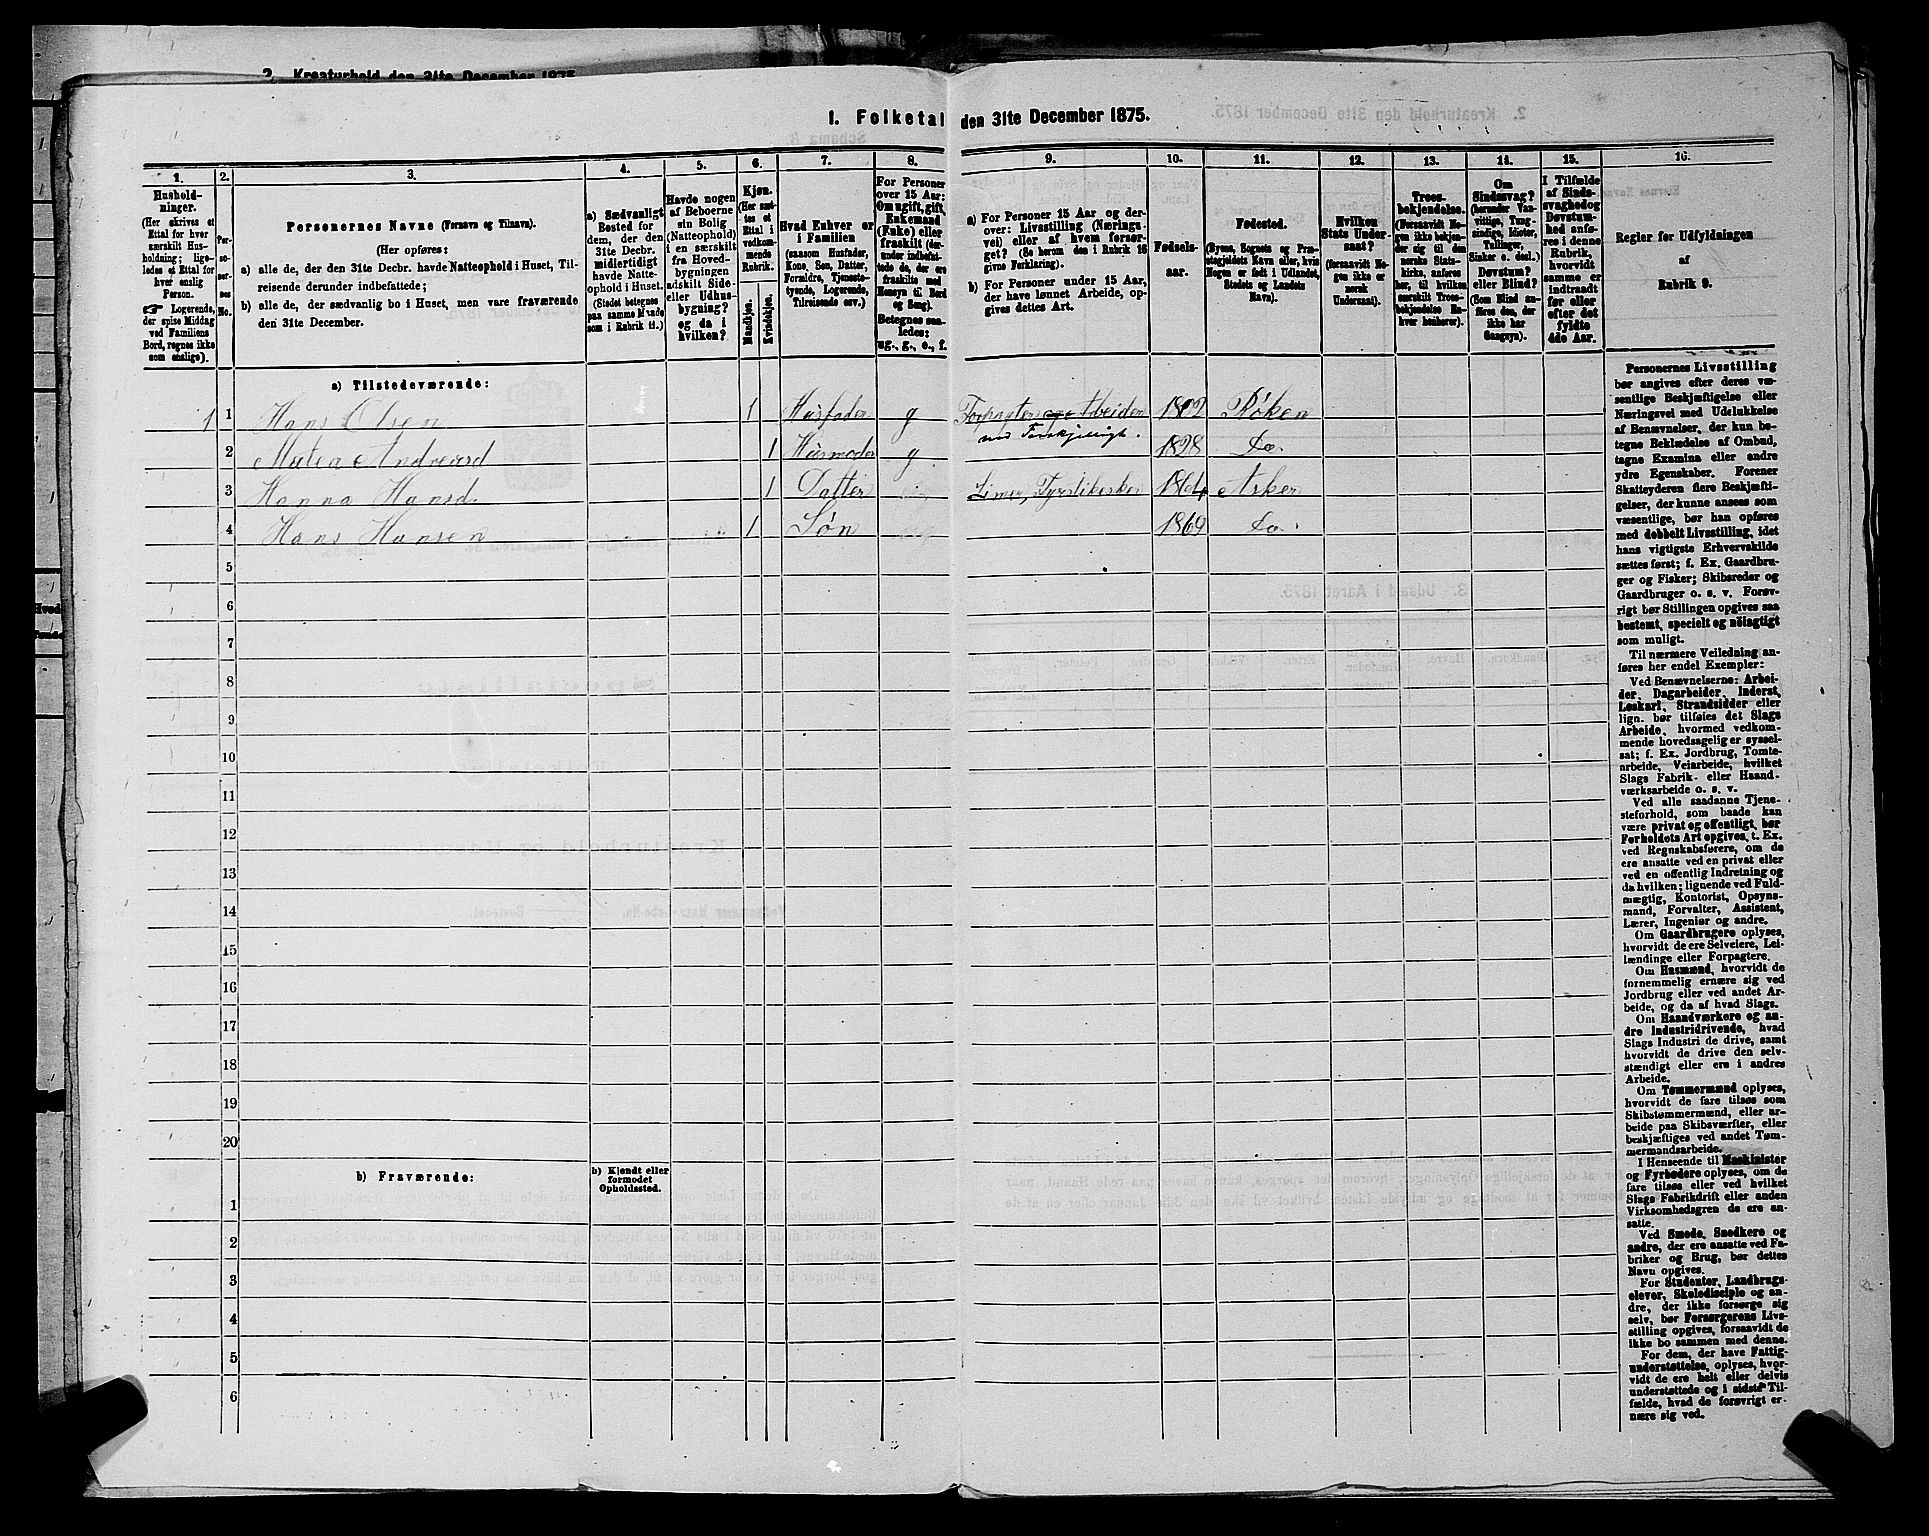 2. Kreaturhold den 31te December 1875.
I. Folketal den 31te December 1875.
1. 2. 3. 4. 5. 6. 7. 8. 9. 10. 11. 12. 13. 14. 15. 16.
Hushold-
ninger.
(Her skrives et
Ettal for hver
særskilt Hus-
holdning; lige-
ledes et Ettal for
hver enslig
Person.
☞ Logerende,
der spise Middag
ved Familiens
Bord, regnes ikke
som enslige).
Per-
so-
ner-
nes
No.
Personernes Navne (Fornavn og Tilnavn).
(Her opføres:
a) alle de, der den 31te Decbr. havde Natteophold i Huset, Til-
reisende derunder indbefattede;
b) alle de, der sædvanlig bo i Huset, men vare fraværende
den 31te December.
a) Sædvanligt
Bosted for
dem, der den
31te Decbr.
midlertidigt
havde Natte-
ophold i Huset.
(Stedet betegnes
paa samme Maade
som i Rubrik 11.)
Havde nogen
af Beboerne
sin Bolig
(Natteophold)
i en særskilt
fra Hoved-
bygningen
adskilt Side-
eller Udhus-
bygning?
og da i
hvilken?
Kjøn.
(Her sæt-
tes et
Ettal i
vedkom-
mende
Rubrik.
Mandkjøn.
Kvindekjøn.
Hvad Enhver er
i Familien
(saasom Husfader,
Kone, Søn, Datter,
Forældre, Tjeneste-
tyende, Logerende,
Tilreisende osv.)
For Personer
over 15 Aar:
Om ugift, gift,
Enkemand
(Enke) eller
fraskilt (der-
under indbefatt-
tede de, der ere
fraskilte med
Hensyn til Bord
og Seng).
Betegnes saa-
ledes:
ug., g., e., f.
a) For Personer 15 Aar og der-
over: Livsstilling (Nærings-
vei) eller af hvem forsør-
get? (Se herom den i Rubrik 16
givne Forklaring).
b) For Personer under 15 Aar,
der have lønnet Arbeide, op-
gives dettes Art.
Fødsels-
aar.
Fødested.
(Byens, Sognets og Præ-
stegjeldets Navn eller, hvis
Nogen er født i Udlandet,
Stedets og Landets
Navn).
Hvilken
Stats Under-
saat?
(forsaavidt No-
gen ikke er
norsk
Undersaat).
Troes-
bekjendelse.
(Forsaavidt No-
gen ikke bekjen-
der sig til den
norske Stats-
kirke, anføres
her, til hvilken
særskilt Troes-
bekjendelse En-
hver henhører).
Om
Sindssvag?
(herunder Van-
vittige, Tung-
sindige, Idioter,
Tullinger,
Sinker o. desl.)
Døvstum?
eller Blind?
(Som Blind an-
føres den, der
ikke har
Gangsyn).
I Tilfælde
af Sinds-
svaghed og
Døvstum-
hed anfø-
res i denne
Rubrik,
hvorvidt
samme er
indtraadt
før eller
efter det
fyldte
4de Aar.
Regler for Udfyldningen
af
Rubrik 9.
a) Tilstedeværende:
1 1 Hans Olsen 1 Husfader g Forpagter og Arbeider 1822 Røken
med Forskjelligt.
2 Matea Andreasd 1 Husmoder g 1828 Do.
3 Hanna Hansd. 1 Datter Limer Fyrstikesker 1864 Asker
4 Hans Hansen 1 Søn 1869 Do.
5
6
7
8
9
10
11
12
13
14
15
16
17
18
19
20
b) Fraværende:
b) Kjendt eller
formodet
Opholdssted.
1
2
3
4
5
6
Personernes Livsstilling
bør angives efter deres væ-
sentlige Beskjæftigelse eller
Næringsvei med Udelukkelse
af Benævnelser, der kun be-
tegne Beklædelse af Ombud,
tagne Examina eller andre
ydre Egenskaber. Forener
Skatteyderen flere Beskjæfti-
gelser, der kunne ansees som
væsentlige, bør han opføres
med dobbelt Livsstilling, idet
hans vigtigste Erhvervskilde
sættes først; f. Ex. Gaardbru-
ger og Fisker; Skibsreder og
Gaardbruger o. s. v. Forøv-
rigt bør Stillingen opgives saa
bestemt, specielt og nöiagtigt
som muligt.
Til nærmere Veiledning an-
føres her endel Exempler:
Ved Benævnelserne: Arbei-
der, Dagarbeider, Inderst,
Løskarl, Strandsidder eller
lign. bør tilføies det Slags
Arbeide, hvormed vedkom-
mende hovedsagelig er syssel-
sat; f. Ex. Jordbrug, Tomte-
arbeide, Veiarbeide, hvilket
Slags Fabrik- eller Haand-
værksarbeide o. s. v.
Ved alle saadanne Tjene-
steforhold, som baade kan
være privat og offentligt, bør
Forholdets Art opgives, t. Ex.
ved Regnskabsførere, om de
ere ansatte ved en privat eller
ved en offentlig Indretning og
da hvilken; lignende ved Fuld-
mægtig, Kontorist, Opsyns-
mand, Forvalter, Assistent,
Lærer, Ingeniør og andre.
Om Gaardbrugere oplyses,
hvorvidt de ere Selveiere, Lei-
lændinge eller Forpagtere.
Om Husmænd, hvorvidt de
fornemmelig ernære sig ved
Jordbrug eller ved andet Ar-
beide, og da af hvad Slags.
Om Haandværkere og an-
dre Industridrivende, hvad
Slags Industri de drive, samt
hvorvidt de drive den selv-
stændigt eller ere i andres
Arbeide.
Om Tømmermænd oplyses,
hvorvidt de fare tilsøs som
Skibstømmermænd, eller ar-
beide paa Skibsværfter, eller
beskjæftiges ved andet Tøm-
mermandsarbeide.
I Henseende til Maskinister
og Fyrbødere oplyses, om de
fare tilsøs eller ved hvilket
Slags Fabrikdrift eller anden
Virksomhedsgren de ere an-
satte.
Ved Smede, Snedkere og
andre, der ere ansatte ved Fa-
briker og Brug, bør dettes
Navn opgives.
For Studenter, Landbrugs-
elever, Skoledisciple og an-
dre, der ikke forsørge sig
selv, bør Forsørgerens Livs-
stilling opgives, forsaavidt de
ikke bo sammen med denne.
For dem, der have Fattig-
understøttelse, oplyses, hvor-
vidt de ere helt eller delvis
understøttede og i sidste Til-
fælde, hvad de forøvrigt er-
nære sig ved.